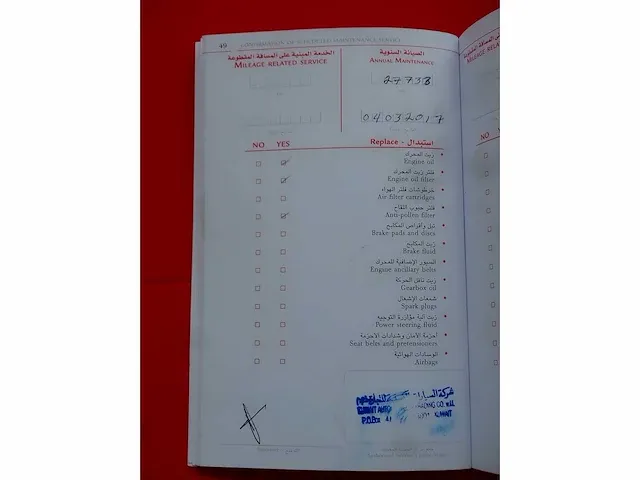 49
الخدمة المبنية على المسافة المقطوعة
MILEAGE RELATED SERVICE
الصيانة السنوية
ANNUAL MAINTENANCE
27738
04032017
NO YES
Replace - استبدال
زيت المحرك
Engine oil
فلتر زيت المحرك
Engine oil filter
خرطوشات فلتر الهواء
Air filter cartridges
فلتر حبوب اللقاح
Anti-pollen filter
تيل وأقراص المكابح
Brake pads and discs
زيت المكابح
Brake fluid
السيور الإضافية للمحرك
Engine ancillary belts
زيت ناقل الحركة
Gearbox oil
شمعات الإشعال
Spark plugs
زيت آلية مؤازرة التوجيه
Power steering fluid
أحزمة الأمان وشدادات الأحزمة
Seat belts and pretensioners
الوسادات الهوائية
Airbags
شركة
TRADING CO. W.L.L.
P.O.Box
KUWAIT
NO